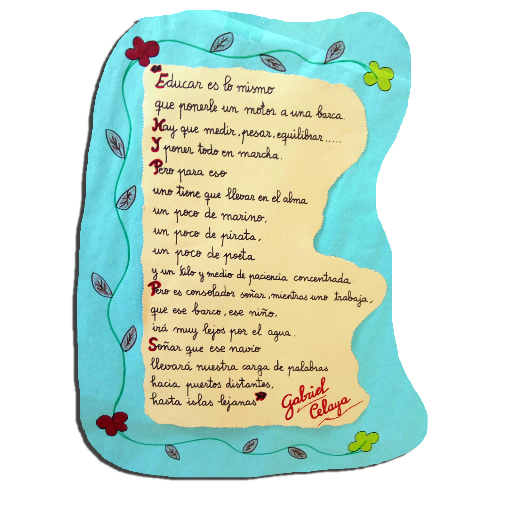 "Educar es lo mismo
que ponerle un motor a una barca.
Hay que medir, pesar, equilibrar.....
Y poner todo en marcha.
Pero para eso
uno tiene que llevar en el alma
un poco de marino,
un poco de pirata,
un poco de poeta
y un kilo y medio de paciencia concentrada.
Pero es consolador soñar, mientras uno trabaja,
que ese barco, ese niño,
irá muy lejos por el agua.
Soñar que ese navío
llevará nuestra carga de palabras
hacia puertos distantes,
hasta islas lejanas"
Gabriel
Celaya